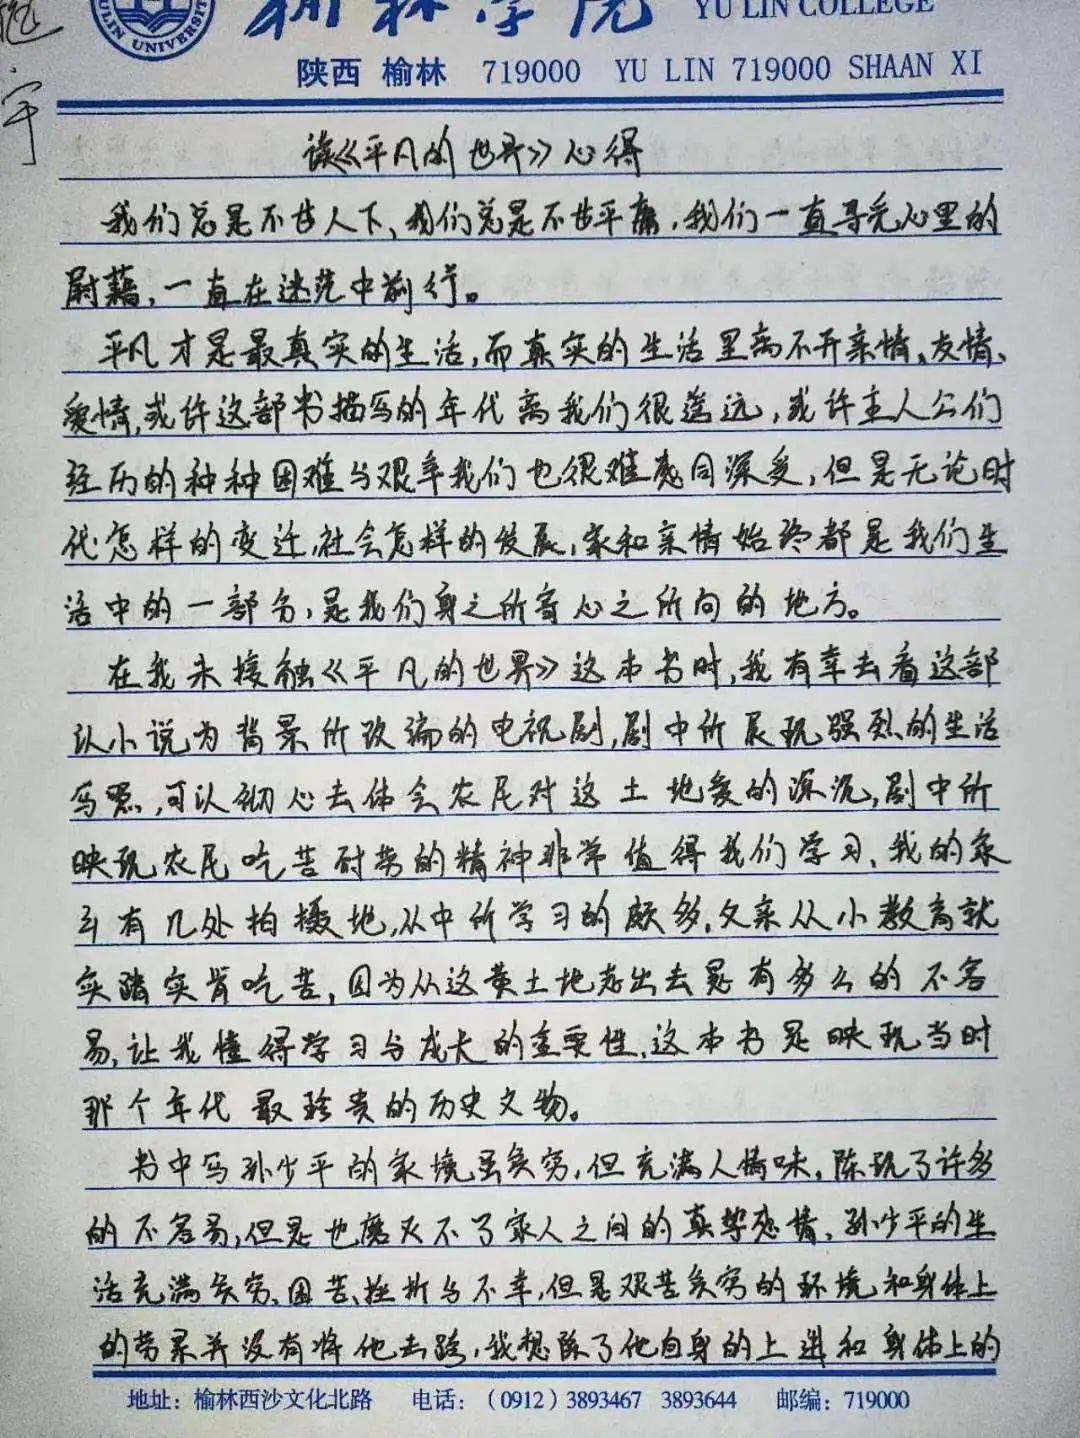 榆林学院 YU LIN COLLEGE
YULIN UNIVERSITY
陕西 榆林 719000 YU LIN 719000 SHAAN XI
宇
读《平凡的世界》心得
我们总是不甘人下、我们总是不甘平庸,我们一直寻觅心里的
尉藉,一直在迷茫中前行。
平凡才是最真实的生活,而真实的生活里离不开亲情、友情、
爱情,或许这部书描写的年代离我们很遥远,或许主人公们
经历的种种困难与艰辛我们也很难感同深受,但是无论时
代怎样的变迁,社会怎样的发展,家和亲情始终都是我们生
活中的一部分,是我们身之所寄心之所向的地方。
在我未接触《平凡的世界》这本书时,我有幸去看这部
以小说为背景所改编的电视剧,剧中所展现强烈的生活
写照,可以彻心去体会农民对这土地爱的深沉,剧中所
映现农民吃苦耐劳的精神非常值得我们学习、我的家
乡有几处拍摄地,从中所学习的颇多,父亲从小教育就
实踏实肯吃苦,因为从这黄土地走出去是有多么的不容
易,让我懂得学习与成长的重要性,这本书是映现当时
那个年代最珍贵的历史文物。
书中写孙少平的家境虽贫穷,但充满人情味,陈现了许多
的不容易,但是也磨灭不了家人之间的真挚感情,孙少平的生
活充满贫穷、困苦、挫折与不幸,但是艰苦贫穷的环境和身体上
的劳累并没有将他击跨,我想除了他自身的上进和身体上的
地址:榆林西沙文化北路 电话:(0912)3893467 3893644 邮编:719000